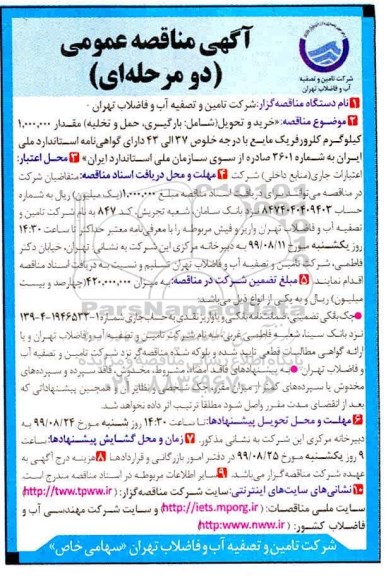 آگهی مناقصه عمومی
(دو مرحله‌ای)
شرکت تامین و تصفیه
آب و فاضلاب تهران
1 نام دستگاه مناقصه‌گزار: شرکت تامین و تصفیه آب و فاضلاب تهران
2 موضوع مناقصه: «خرید و تحویل (شامل: بارگیری، حمل و تخلیه) مقدار ۱,۰۰۰,۰۰۰
کیلوگرم کلروفریک مایع با درجه خلوص ۳۷ الی ۴۳ دارای گواهی‌نامه استاندارد ملی
ایران به شماره ۳۶۰۱ صادره از سوی سازمان ملی استاندارد ایران» 3 محل اعتبار:
اعتبارات جاری (منابع داخلی) شرکت 4 مهلت و محل دریافت اسناد مناقصه: متقاضیان شرکت
در مناقصه می‌توانند برای دریافت اسناد مناقصه مبلغ ۱,۰۰۰,۰۰۰ (یک میلیون) ریال به شماره
حساب ۸۴۷۴۰۴۰۴۰۹۴۰۳ نزد بانک سامان، شعبه تجریش کد ۸۴۷ به نام شرکت تامین و
تصفیه آب و فاضلاب تهران واریز و فیش مربوطه را با معرفی‌نامه معتبر حداکثر تا ساعت ۱۴:۳۰
روز یکشنبه مورخ ۹۹/۰۸/۱۱ به دبیرخانه مرکزی این شرکت به نشانی: تهران، خیابان دکتر
فاطمی، شرکت تامین و تصفیه آب و فاضلاب تهران تسلیم و نسبت به دریافت اسناد مناقصه
اقدام نمایند. 5 مبلغ تضمین شرکت در مناقصه: به میزان ۴۲۰,۰۰۰,۰۰۰ (چهارصد و بیست
میلیون) ریال و به یکی از انواع ذیل می‌باشد:
چک بانکی تضمینی، ضمانت‌نامه بانکی و یا واریز نقدی به حساب جاری شماره ۱-۱۹۴۶۵۳۳-۴-۱۳۹
نزد بانک سینا، شعبه فاطمی غربی، به نام شرکت تامین و تصفیه آب و فاضلاب تهران و یا
ارائه گواهی مطالبات قطعی تایید شده و بلوکه شده مناقصه‌گر نزد شرکت تامین و تصفیه آب
و فاضلاب تهران به پیشنهادهای فاقد امضاء، مشروط، مخدوش، فاقد سپرده و سپرده‌های
مخدوش یا سپرده‌های کمتر از میزان مقرر، چک شخصی و نظایر آن و همچنین پیشنهاداتی که
بعد از انقضای مدت مقرر واصل شود مطلقا ترتیب اثر داده نخواهد شد.
6 مهلت و محل تحویل پیشنهادها: تا ساعت ۱۴:۳۰ روز شنبه مورخ ۹۹/۰۸/۲۴ به
دبیرخانه مرکزی این شرکت به نشانی مذکور. 7 زمان و محل گشایش پیشنهادها: ساعت
۹ روز یکشنبه مورخ ۹۹/۰۸/۲۵ در دفتر امور بازرگانی و قراردادها 8 هزینه درج آگهی به
عهده شرکت مناقصه‌گزار می‌باشد. 9 سایر اطلاعات مربوطه در اسناد مناقصه مندرج است.
10 نشانی‌های سایت‌های اینترنتی: سایت شرکت مناقصه‌گزار: (http://tww.tpww.ir)
سایت ملی مناقصات: (http://iets.mporg.ir) و سایت شرکت مهندسی آب و
فاضلاب کشور: (http:www.nww.ir)
شرکت تامین و تصفیه آب و فاضلاب تهران «سهامی خاص»